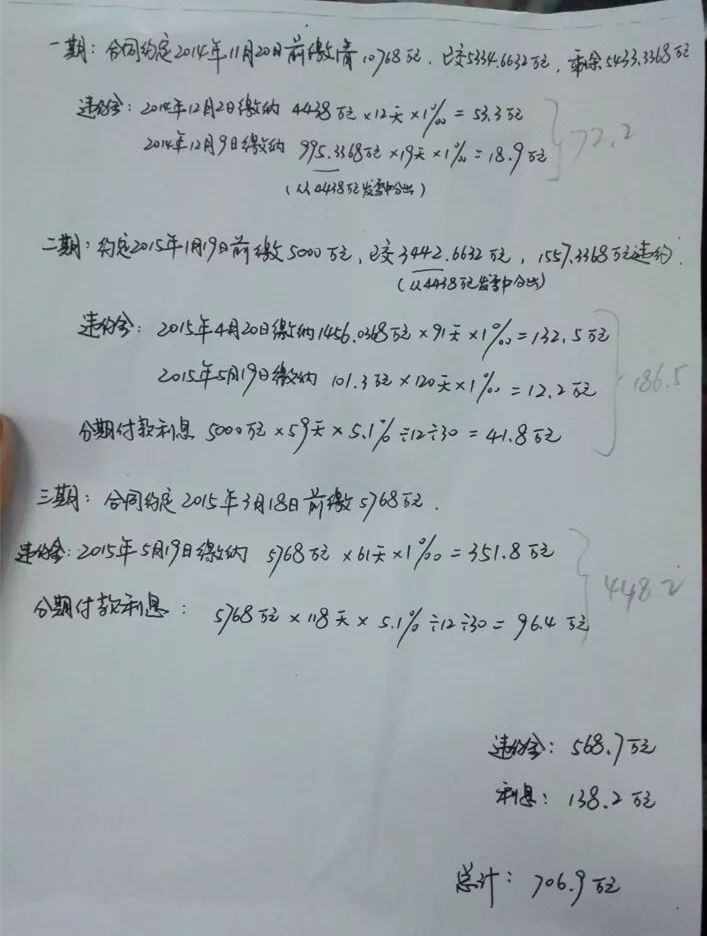 一期：合同约定2014年11月20日前缴清10768万元，已交5334.6632万元，剩余5433.3368万元
违约金：2014年12月2日缴纳 4438万元×12天×1‰=53.3万元
2014年12月9日缴纳 995.3368万元×19天×1‰=18.9万元
72.2
（从4438万元发票中分出）
二期：约定2015年1月19日前缴5000万元，已交3442.6632万元，1557.3368万元违约.
（从4438万元发票中分出）
违约金：2015年4月20日缴纳1456.0368万元×91天×1‰=132.5万元
2015年5月19日缴纳 101.3万元×120天×1‰=12.2万元
186.5
分期付款利息 5000万元×59天×5.1%÷12÷30=41.8万元
三期：合同约定2015年3月18日前缴5768万元.
违约金：2015年5月19日缴纳 5768万元×61天×1‰=351.8万元
448.2
分期付款利息： 5768万元×118天×5.1%÷12÷30=96.4万元
违约金：568.7万元
利息：138.2万元
总计：706.9万元